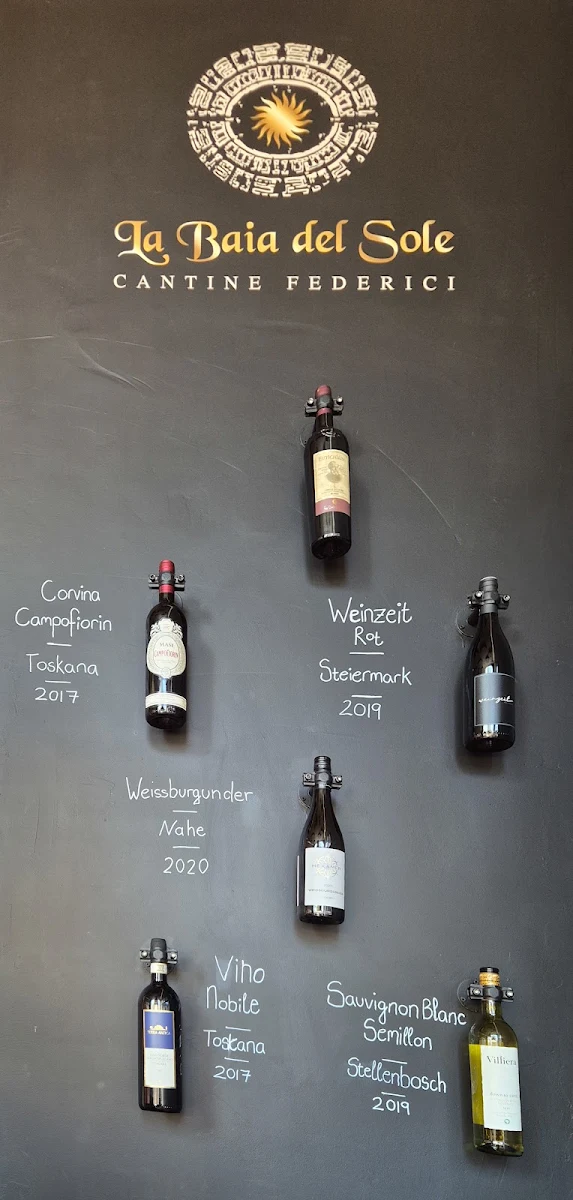 La Baia del Sole
CANTINE FEDERICI
Corvina
Campofiorin
Toskana
2017
MASI
CAMPOFIORIN
Weinzeit
Rot
Steiermark
2019
Weissburgunder
Nahe
2020
Vino
Nobile
Toskana
2017
Sauvignon Blanc
Semillon
Stellenbosch
2019
Villiera